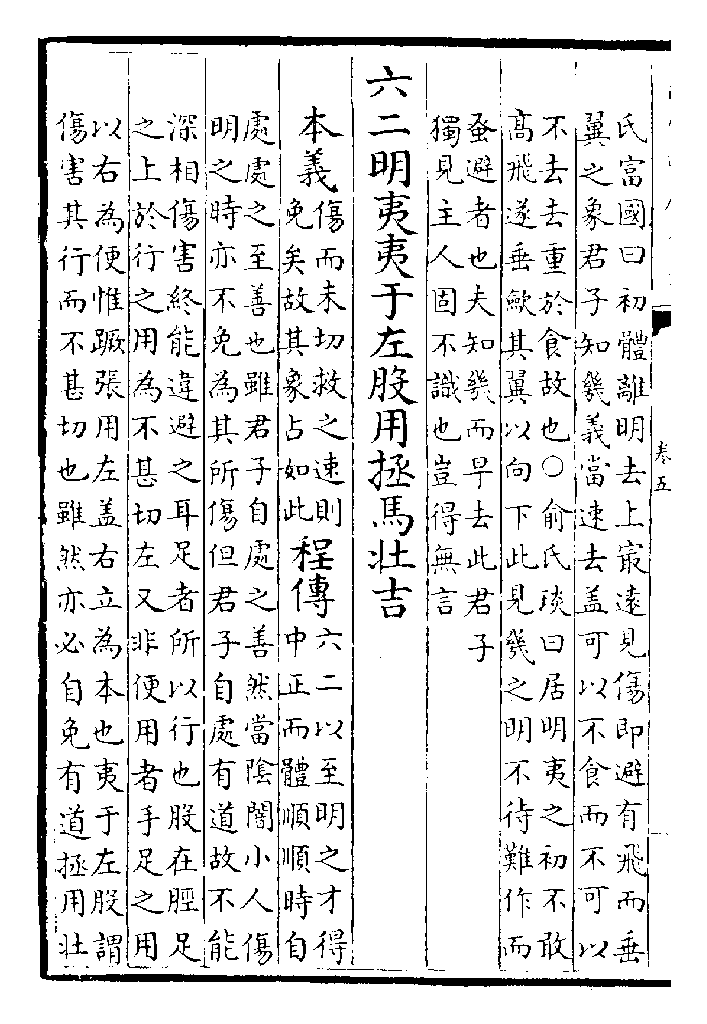 氏富國曰初體離明去上㝡遠見傷即避有飛而垂
翼之象君子知幾義當速去盖可以不食而不可以
不去去重於食故也○俞氏琰曰居明夷之初不敢
高飛遂垂歛其翼以向下此見幾之明不待難作而
蚤避者也夫知幾而早去此君子
獨見主人固不識也豈得無言
六二明夷夷于左股用拯馬壯吉
本義傷而未切救之速則
免矣故其象占如此程傳六二以至明之才得
中正而體順順時自
處處之至善也雖君子自處之善然當陰闇小人傷
明之時亦不免為其所傷但君子自處有道故不能
深相傷害終能違避之耳足者所以行也股在脛足
之上於行之用為不甚切左又非便用者手足之用
以右為便惟蹶張用左盖右立為本也夷于左股謂
傷害其行而不甚切也雖然亦必自免有道拯用壯
卷五